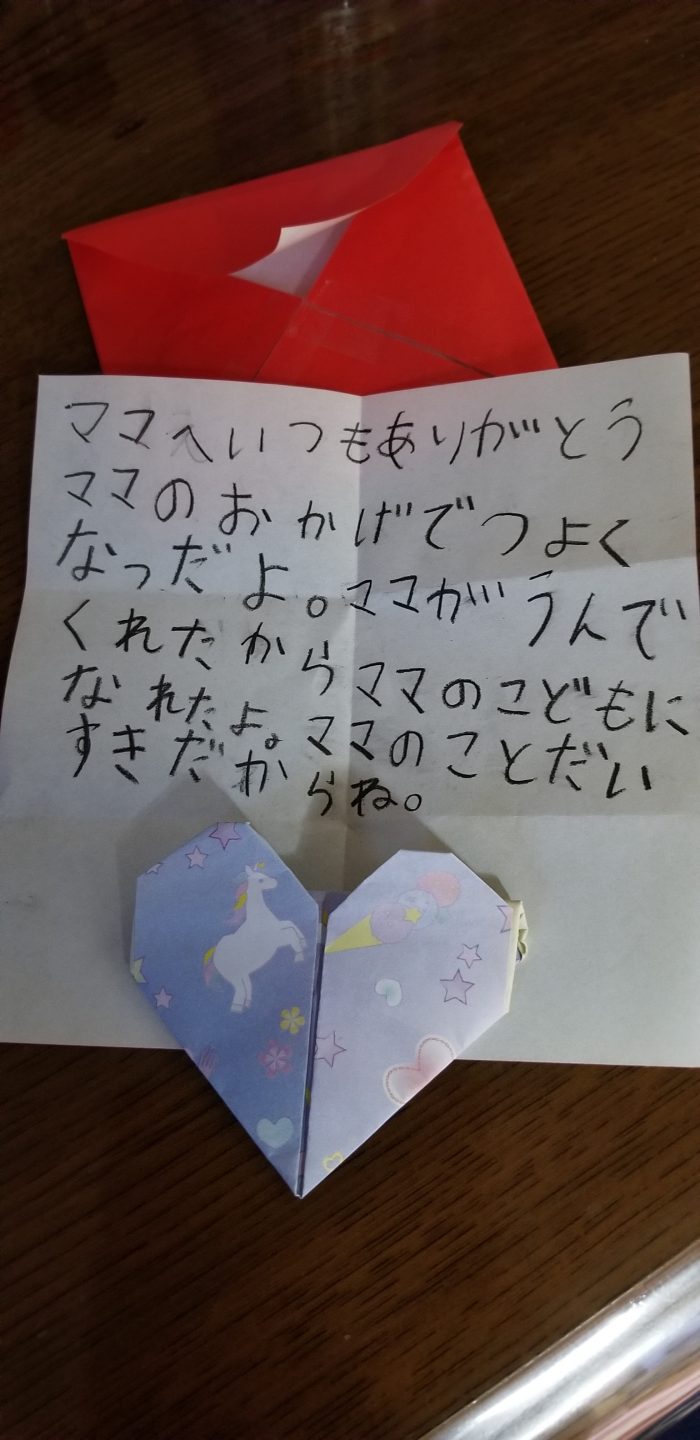 ママへいつもありがとう
ママのおかげでつよく
なっだよ。ママがうんで
くれたからママのこどもに
なれたよ。ママのことだい
すきだからね。